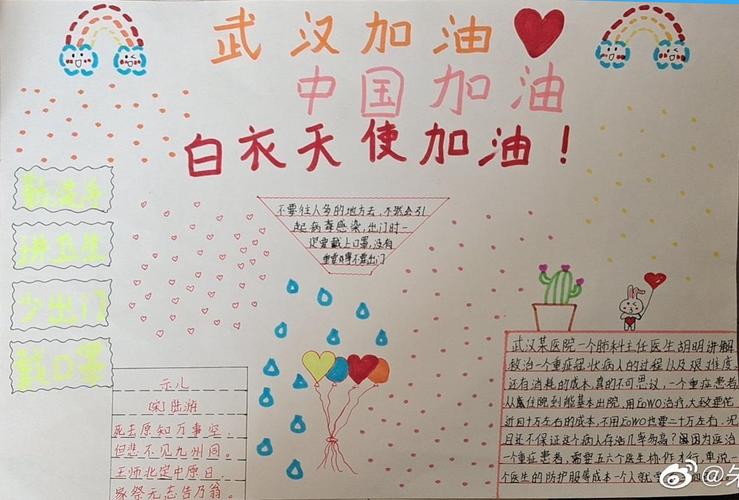 武汉加油
中国加油
白衣天使加油！
勤洗手
讲卫生
少出门
戴口罩
不要往人多的地方去，不然会引
起病毒感染，出门时一
定要戴上口罩，没有
重要事不要出门
示儿
[宋]陆游
死去原知万事空，
但悲不见九州同。
王师北定中原日，
家祭无忘告乃翁。
武汉某医院一个肺科主任医生胡明讲解
救治一个重症冠状病人的过程以及艰难度，
还有消耗的成本，真的不可思议，一个重症患者
从住院到能基本出院，用ECMO治疗，大致要花
近四十万左右的成本，不用ECMO也要二十万左右，况
且还不保证这个病人存活几率多高？因为医治
一个重症患者，需要五六个医生协作才行，单说一
个医生的防护服等成本一个人就